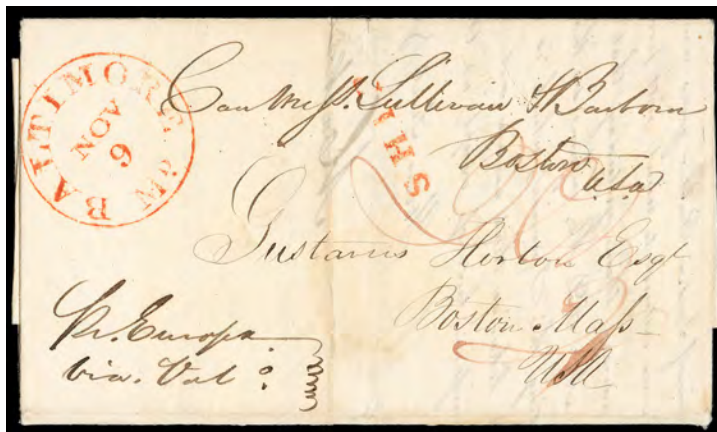 BALTIMORE Md.
NOV
9
SHIP
Care Messrs. Sullivan & Harborn
Boston
U.S.A
Gustavus Horton Esqr
Boston Mass
USA
Pr. Europa
via. Val